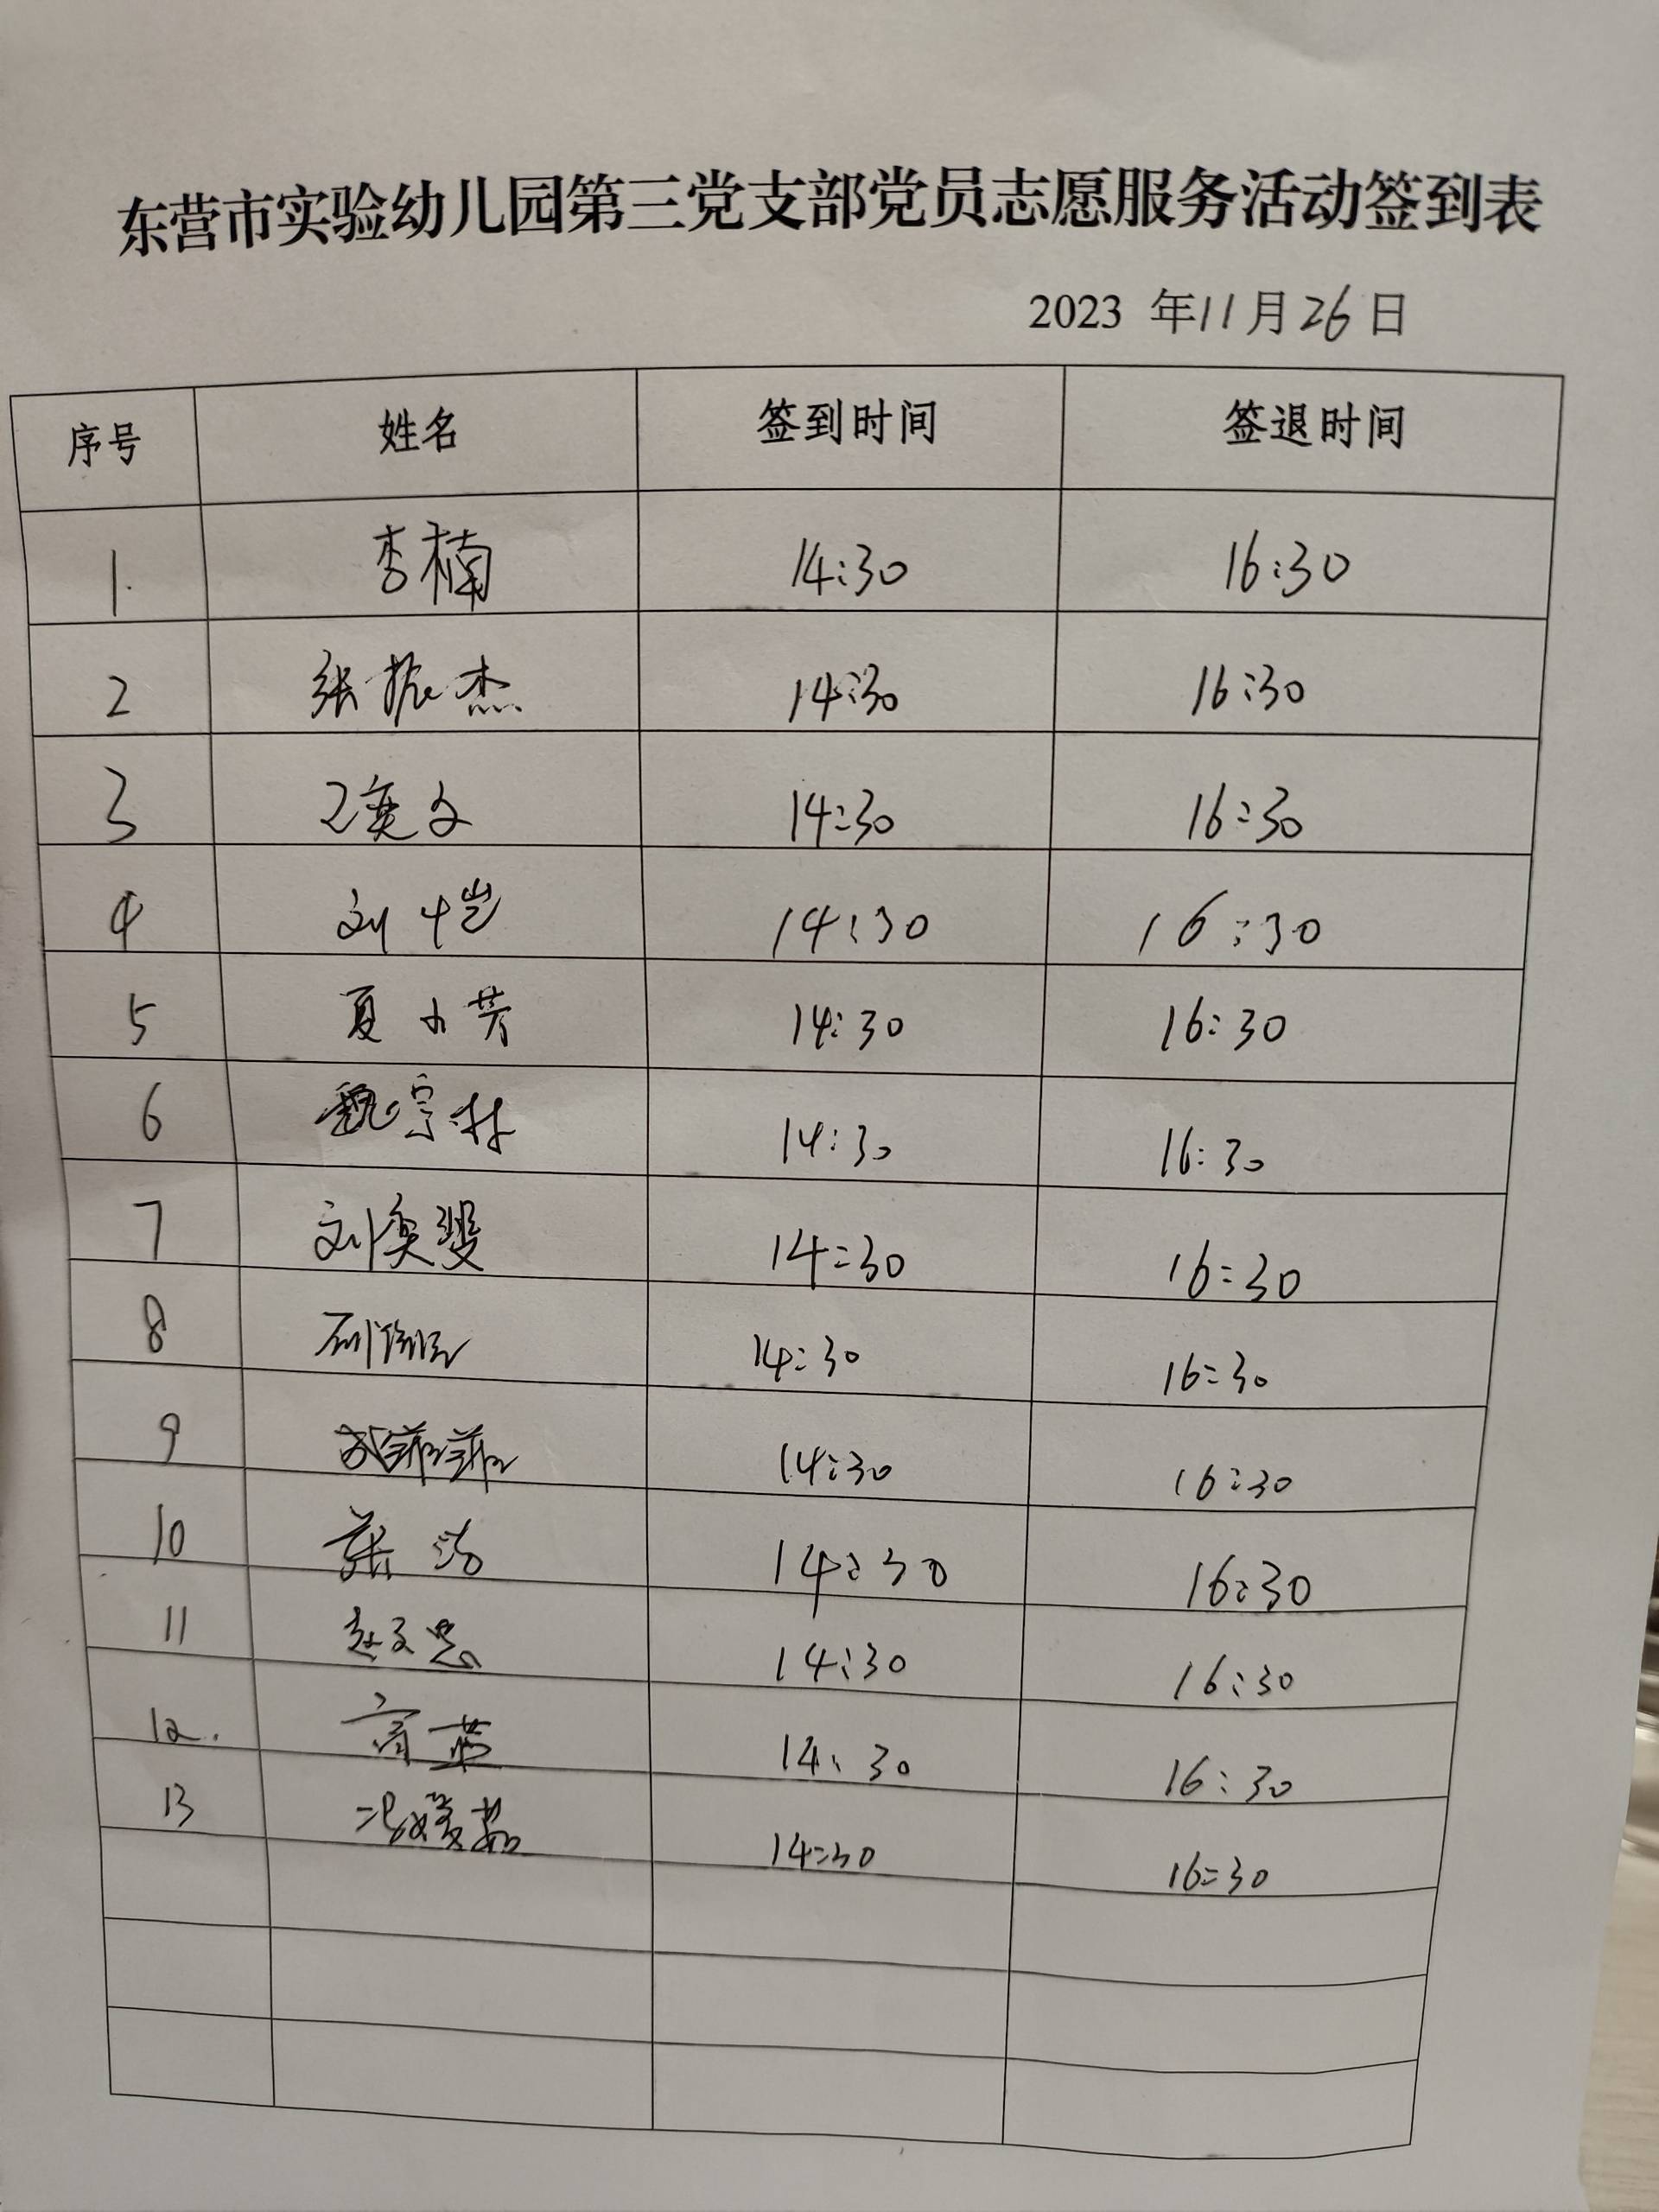 东营市实验幼儿园第三党支部党员志愿服务活动签到表
2023 年11月26日
序号 姓名 签到时间 签退时间
1. 李楠 14:30 16:30
2 张振杰 14:30 16:30
3 王奕文 14:30 16:30
4 刘恺 14:30 16:30
5 夏小芳 14:30 16:30
6 魏宗林 14:30 16:30
7 刘奕斐 14:30 16:30
8 14:30 16:30
9 菲菲 14:30 16:30
10 14:30 16:30
11 赵文忠 14:30 16:30
12. 高燕 14:30 16:30
13 冯媛茹 14:30 16:30